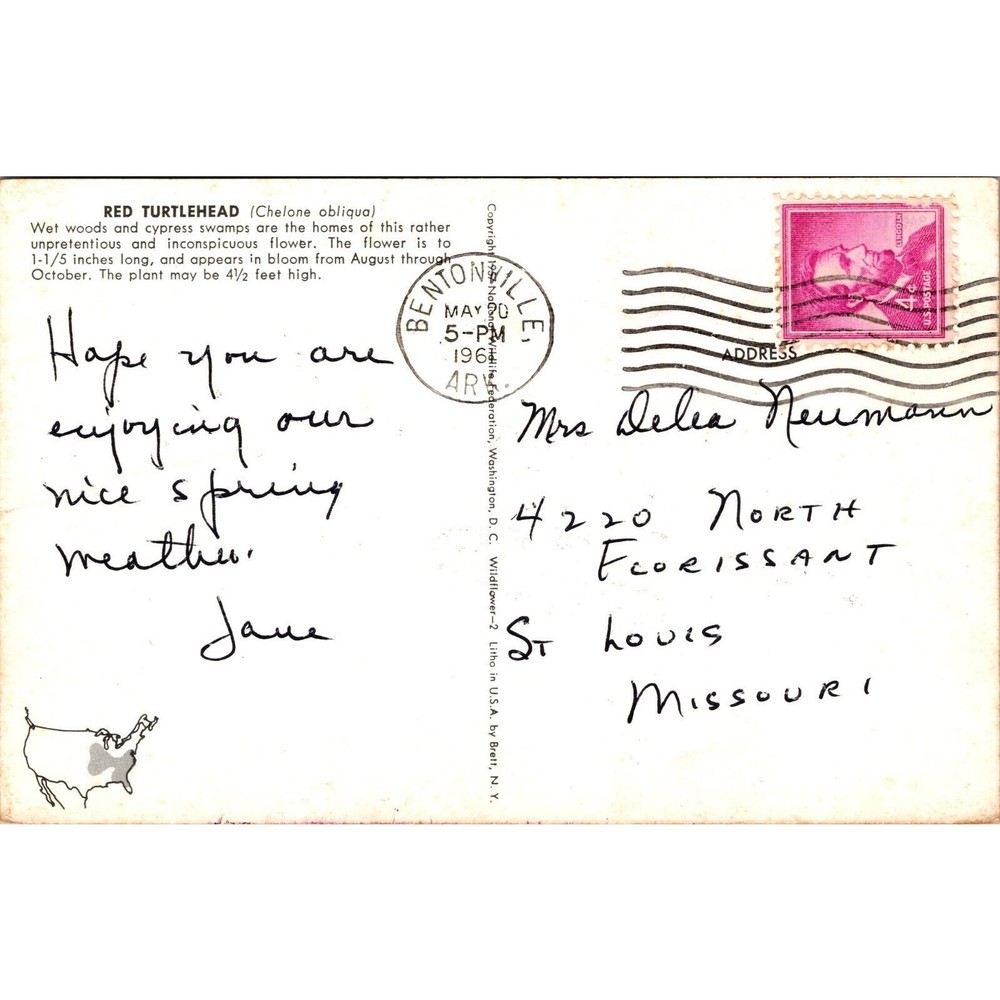 RED TURTLEHEAD (Chelone obliqua)
Wet woods and cypress swamps are the homes of this rather
unpretentious and inconspicuous flower. The flower is to
1-1/5 inches long, and appears in bloom from August through
October. The plant may be 4½ feet high.
Hope you are
enjoying our
nice spring
weather.
Jane
Copyright National Wildlife Federation, Washington, D. C. Wildflower—2 Litho in U.S.A. by Brett, N. Y.
BENTONVILLE,
MAY 20
5-PM
1961
ARK.
LINCOLN
4¢
U.S. POSTAGE
ADDRESS
Mrs Delea Neumann
4220 NORTH
FLORISSANT
ST LOUIS
MISSOURI